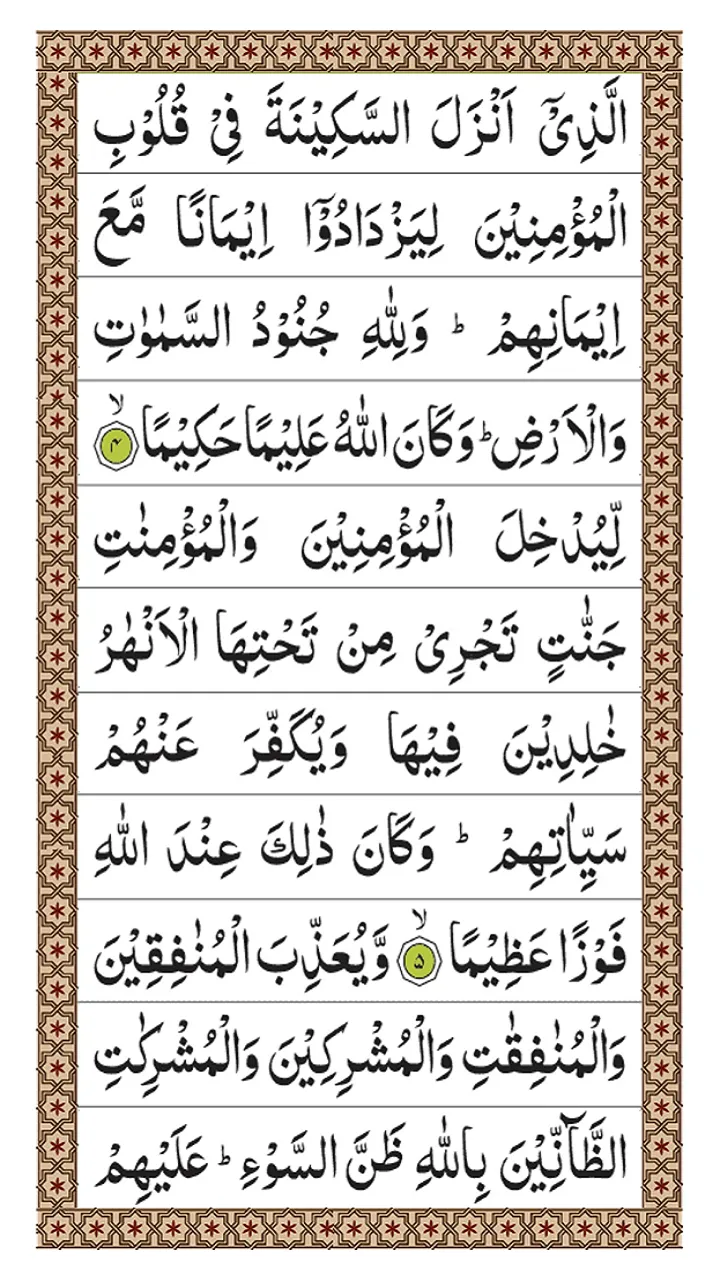 الَّذِیْۤ اَنْزَلَ السَّكِیْنَةَ فِیْ قُلُوْبِ
الْمُؤْمِنِیْنَ لِیَزْدَادُوْۤا اِیْمَانًا مَّعَ
اِیْمَانِهِمْ ؕ وَلِلّٰهِ جُنُوْدُ السَّمٰوٰتِ
وَالْاَرْضِ ؕ وَكَانَ اللّٰهُ عَلِیْمًا حَكِیْمًا ۙ﴿۴﴾
لِّیُدْخِلَ الْمُؤْمِنِیْنَ وَالْمُؤْمِنٰتِ
جَنّٰتٍ تَجْرِیْ مِنْ تَحْتِهَا الْاَنْهٰرُ
خٰلِدِیْنَ فِیْهَا وَیُكَفِّرَ عَنْهُمْ
سَیِّاٰتِهِمْ ؕ وَكَانَ ذٰلِكَ عِنْدَ اللّٰهِ
فَوْزًا عَظِیْمًا ۙ﴿۵﴾ وَّیُعَذِّبَ الْمُنٰفِقِیْنَ
وَالْمُنٰفِقٰتِ وَالْمُشْرِكِیْنَ وَالْمُشْرِكٰتِ
الظَّآنِّیْنَ بِاللّٰهِ ظَنَّ السَّوْءِ ؕ عَلَیْهِمْ